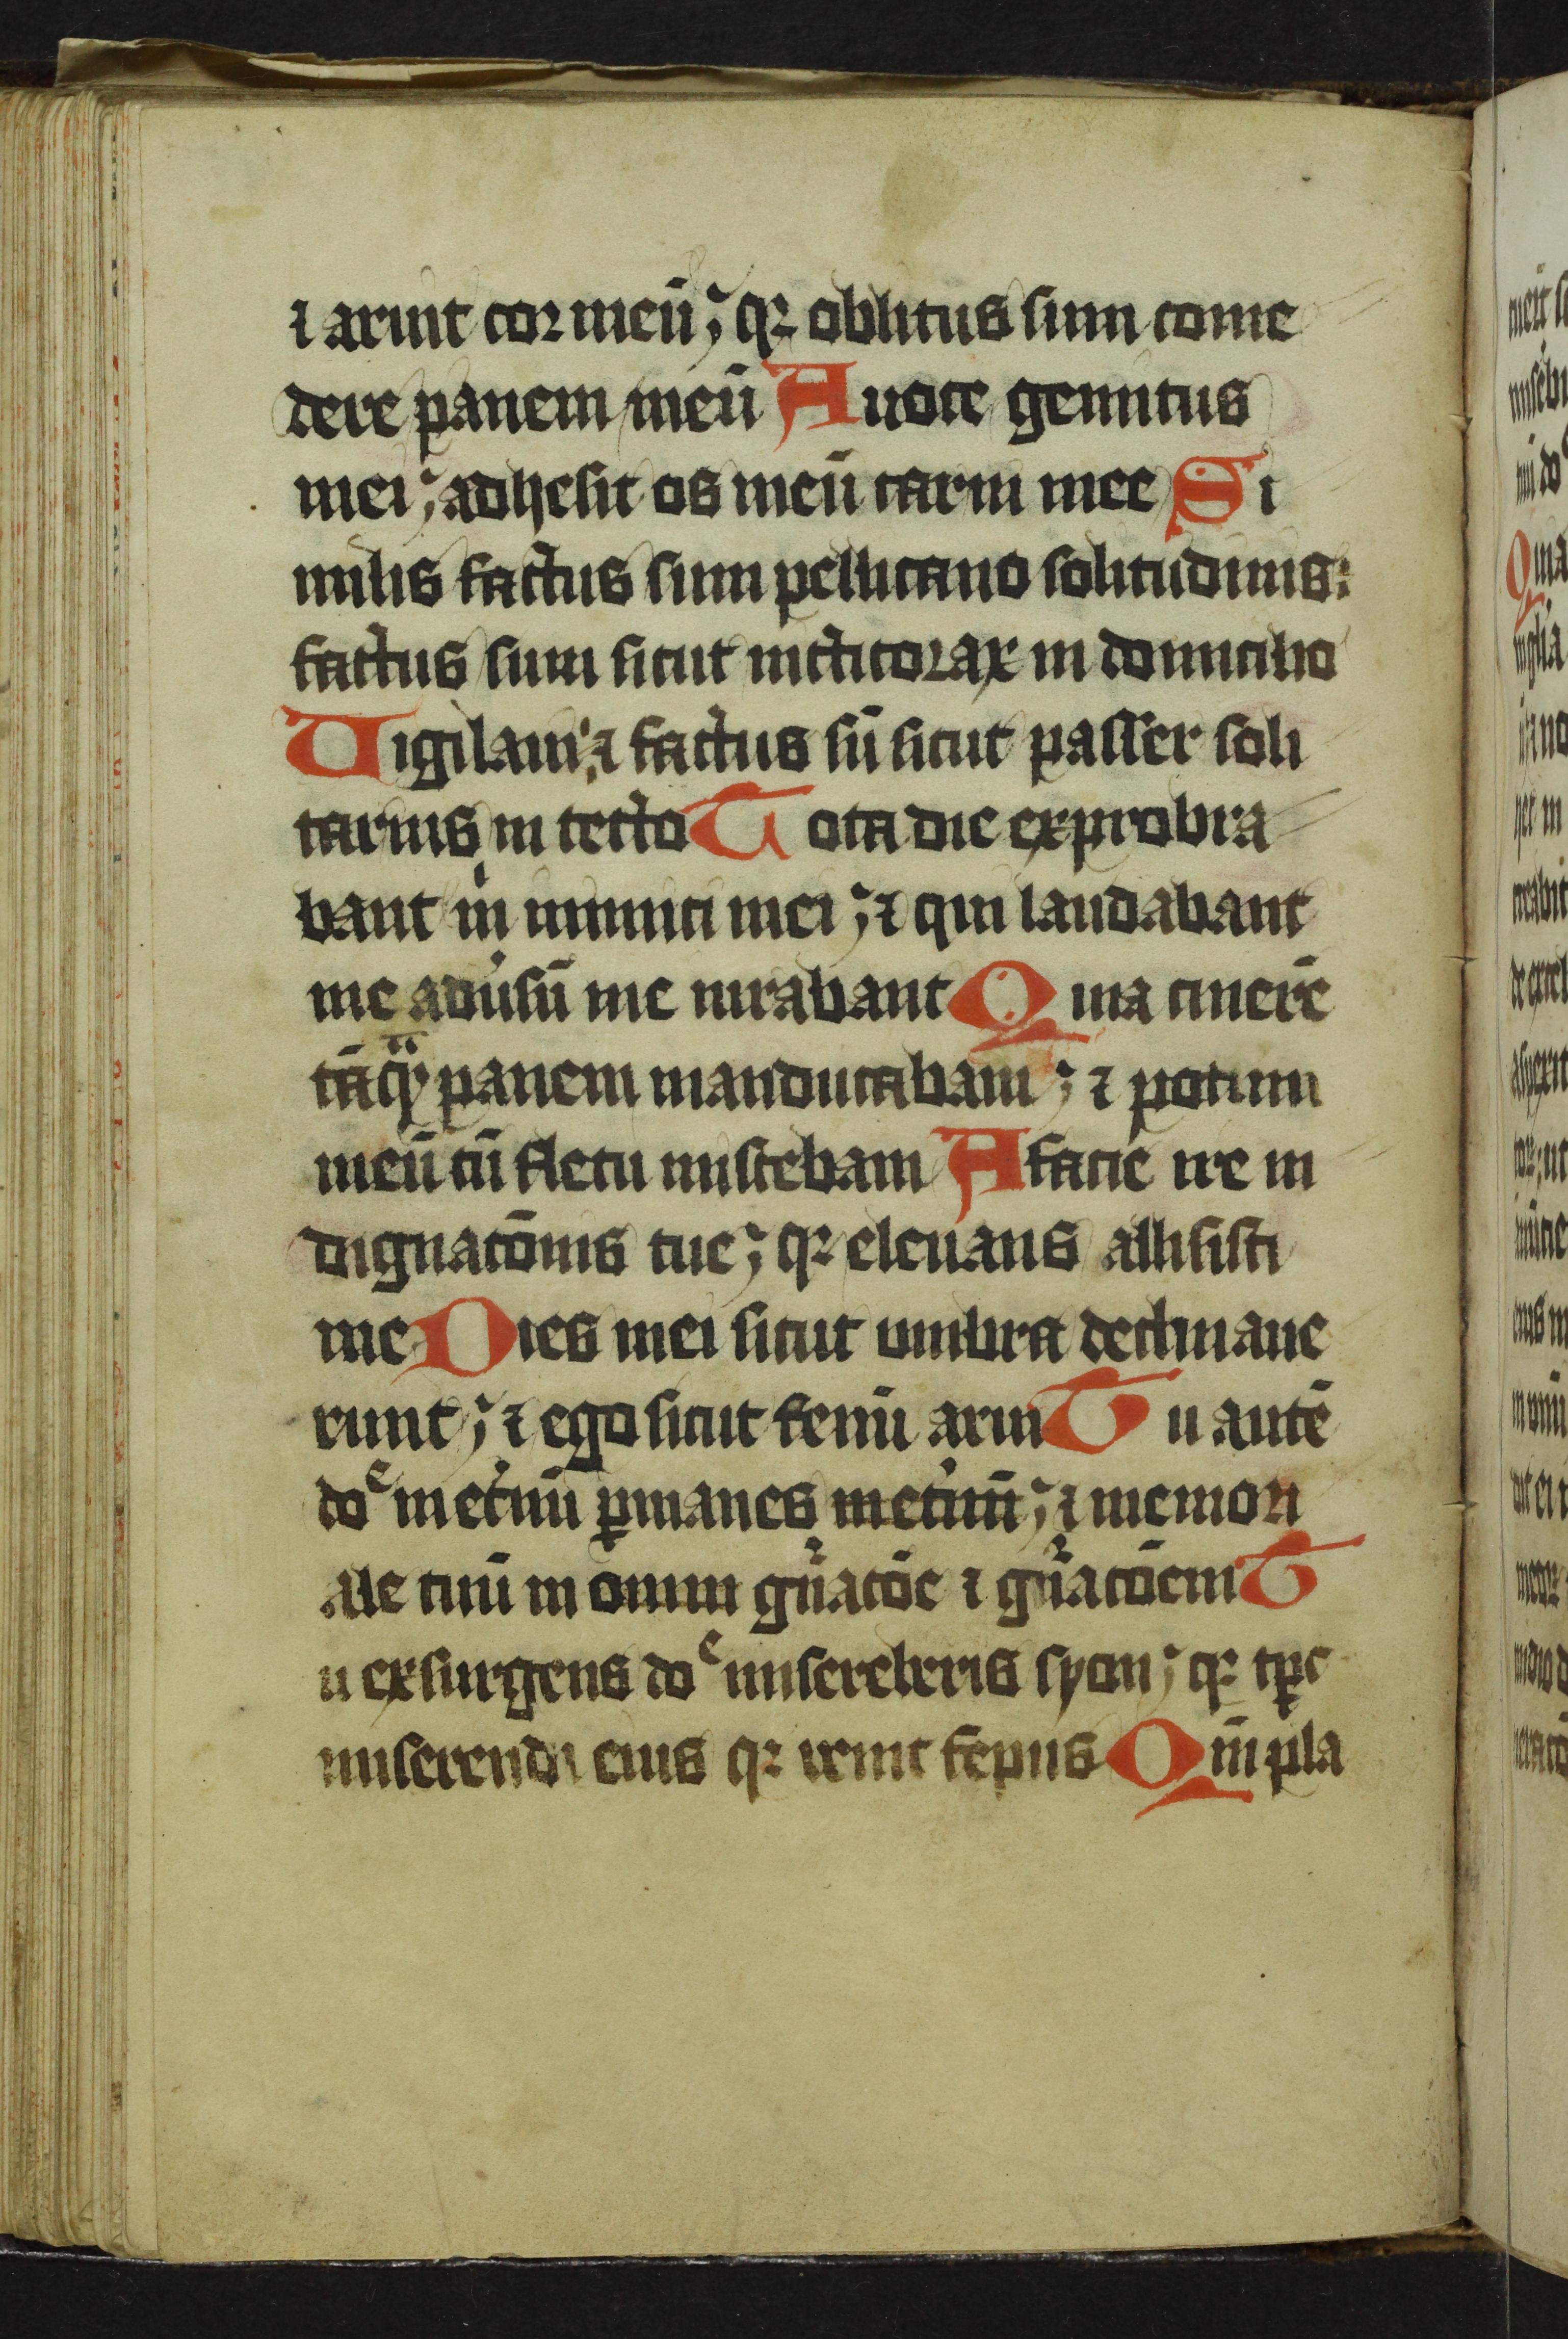 ⁊ aruit cor meū; qꝛ oblitus sum come
dere panem meū A uoce gemitus
mei; adhesit os meū carni mee Si
milis factus sum pellicano solitudinis:
factus sum sicut nicticorax in domicilio
Uigilaui; ⁊ factus sū sicut passer soli
tarius in tecto Tota die exprobra
bant m̍ inimici mei; ⁊ qui laudabant
me adu̓sū me iurabant Quia cinerē
tāqͣꝫ panem manducabam; ⁊ potum
meū cū fletu miscebam A facie ire in
dignacōnis tue; qꝛ eleuans allisisti
me Dies mei sicut umbra declinaue
runt; ⁊ ego sicut fenū arui Tu autē
doᵉ inet̓nū ꝑmanes inet̓nū; ⁊ memori
ale tuū in omni gn̓acōe ⁊ gn̓acōem T
u exsurgens doᵉ misereberis syon; qꝛ tꝑᶜ
miserendi eius qꝛ uenit tēpus Qm̄ pla
ueit s
misebi
ini doᵉ
Quia
in glia
per in
crabit
de excel
aspexit
cor; ut